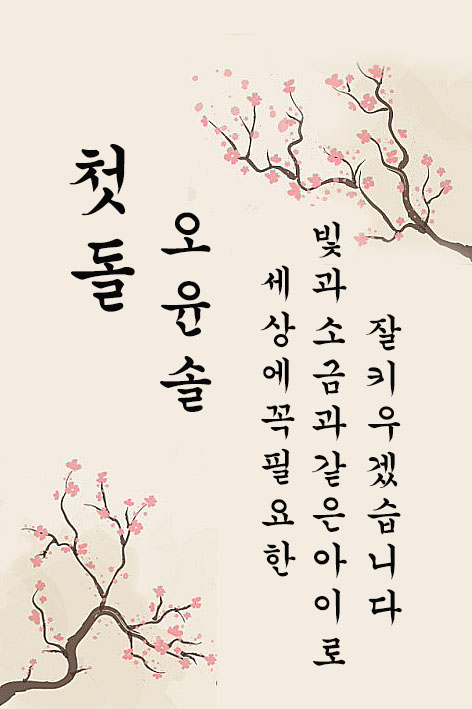 첫돌
오윤솔
세상에꼭필요한
빛과소금과같은아이로
잘키우겠습니다